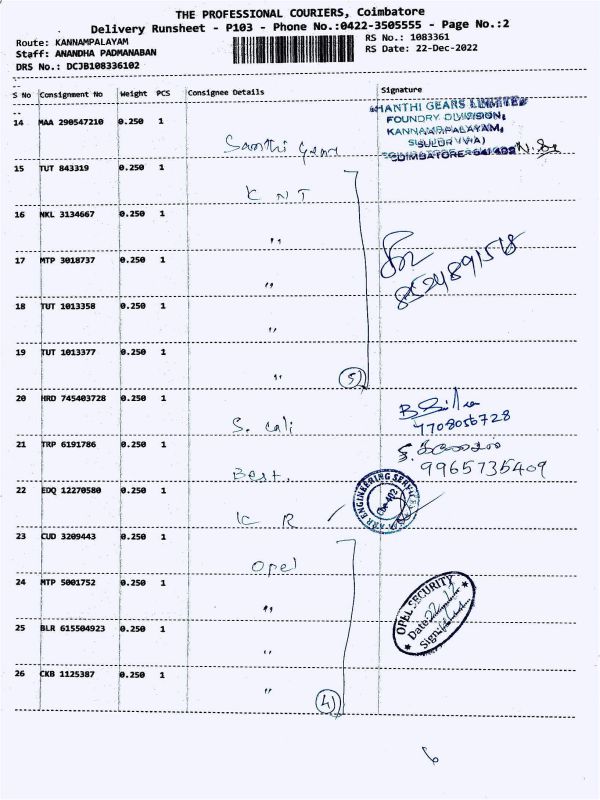 THE PROFESSIONAL COURIERS, Coimbatore
Delivery Runsheet - P103 - Phone No.:0422-3505555 - Page No.:2
Route: KANNAMPALAYAM RS No.: 1083361
Staff: ANANDHA PADMANABAN RS Date: 22-Dec-2022
DRS No.: DCJB108336102
S No Consignment No Weight PCS Consignee Details Signature
14 MAA 290547210 0.250 1
SHANTHI GEARS LIMITED
FOUNDRY DIVISION,
KANNAMPALAYAM,
SULUR (VIA)
COIMBATORE-641 402
Santhi Gears
15 TUT 843319 0.250 1
K N T
16 NKL 3134667 0.250 1
"
17 MTP 3018737 0.250 1
"
8524891518
18 TUT 1013358 0.250 1
"
19 TUT 1013377 0.250 1
" 5
20 HRD 745403728 0.250 1
S. Cali
4708056728
21 TRP 6191786 0.250 1
Best
9965735409
22 EDQ 12270580 0.250 1
K R
ENGINEERING SERVICES
23 CUD 3209443 0.250 1
Opel
24 MTP 5001752 0.250 1
"
OPEL SECURITY
Date:
Sign:
25 BLR 615504923 0.250 1
"
26 CKB 1125387 0.250 1
" 4
6